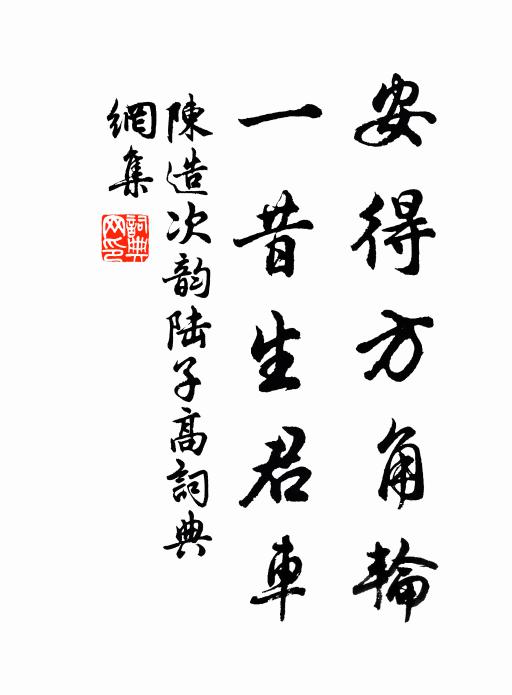 安得方角輪
一昔生君車
陳造次韵陆子高詞典
網集
詞典网印